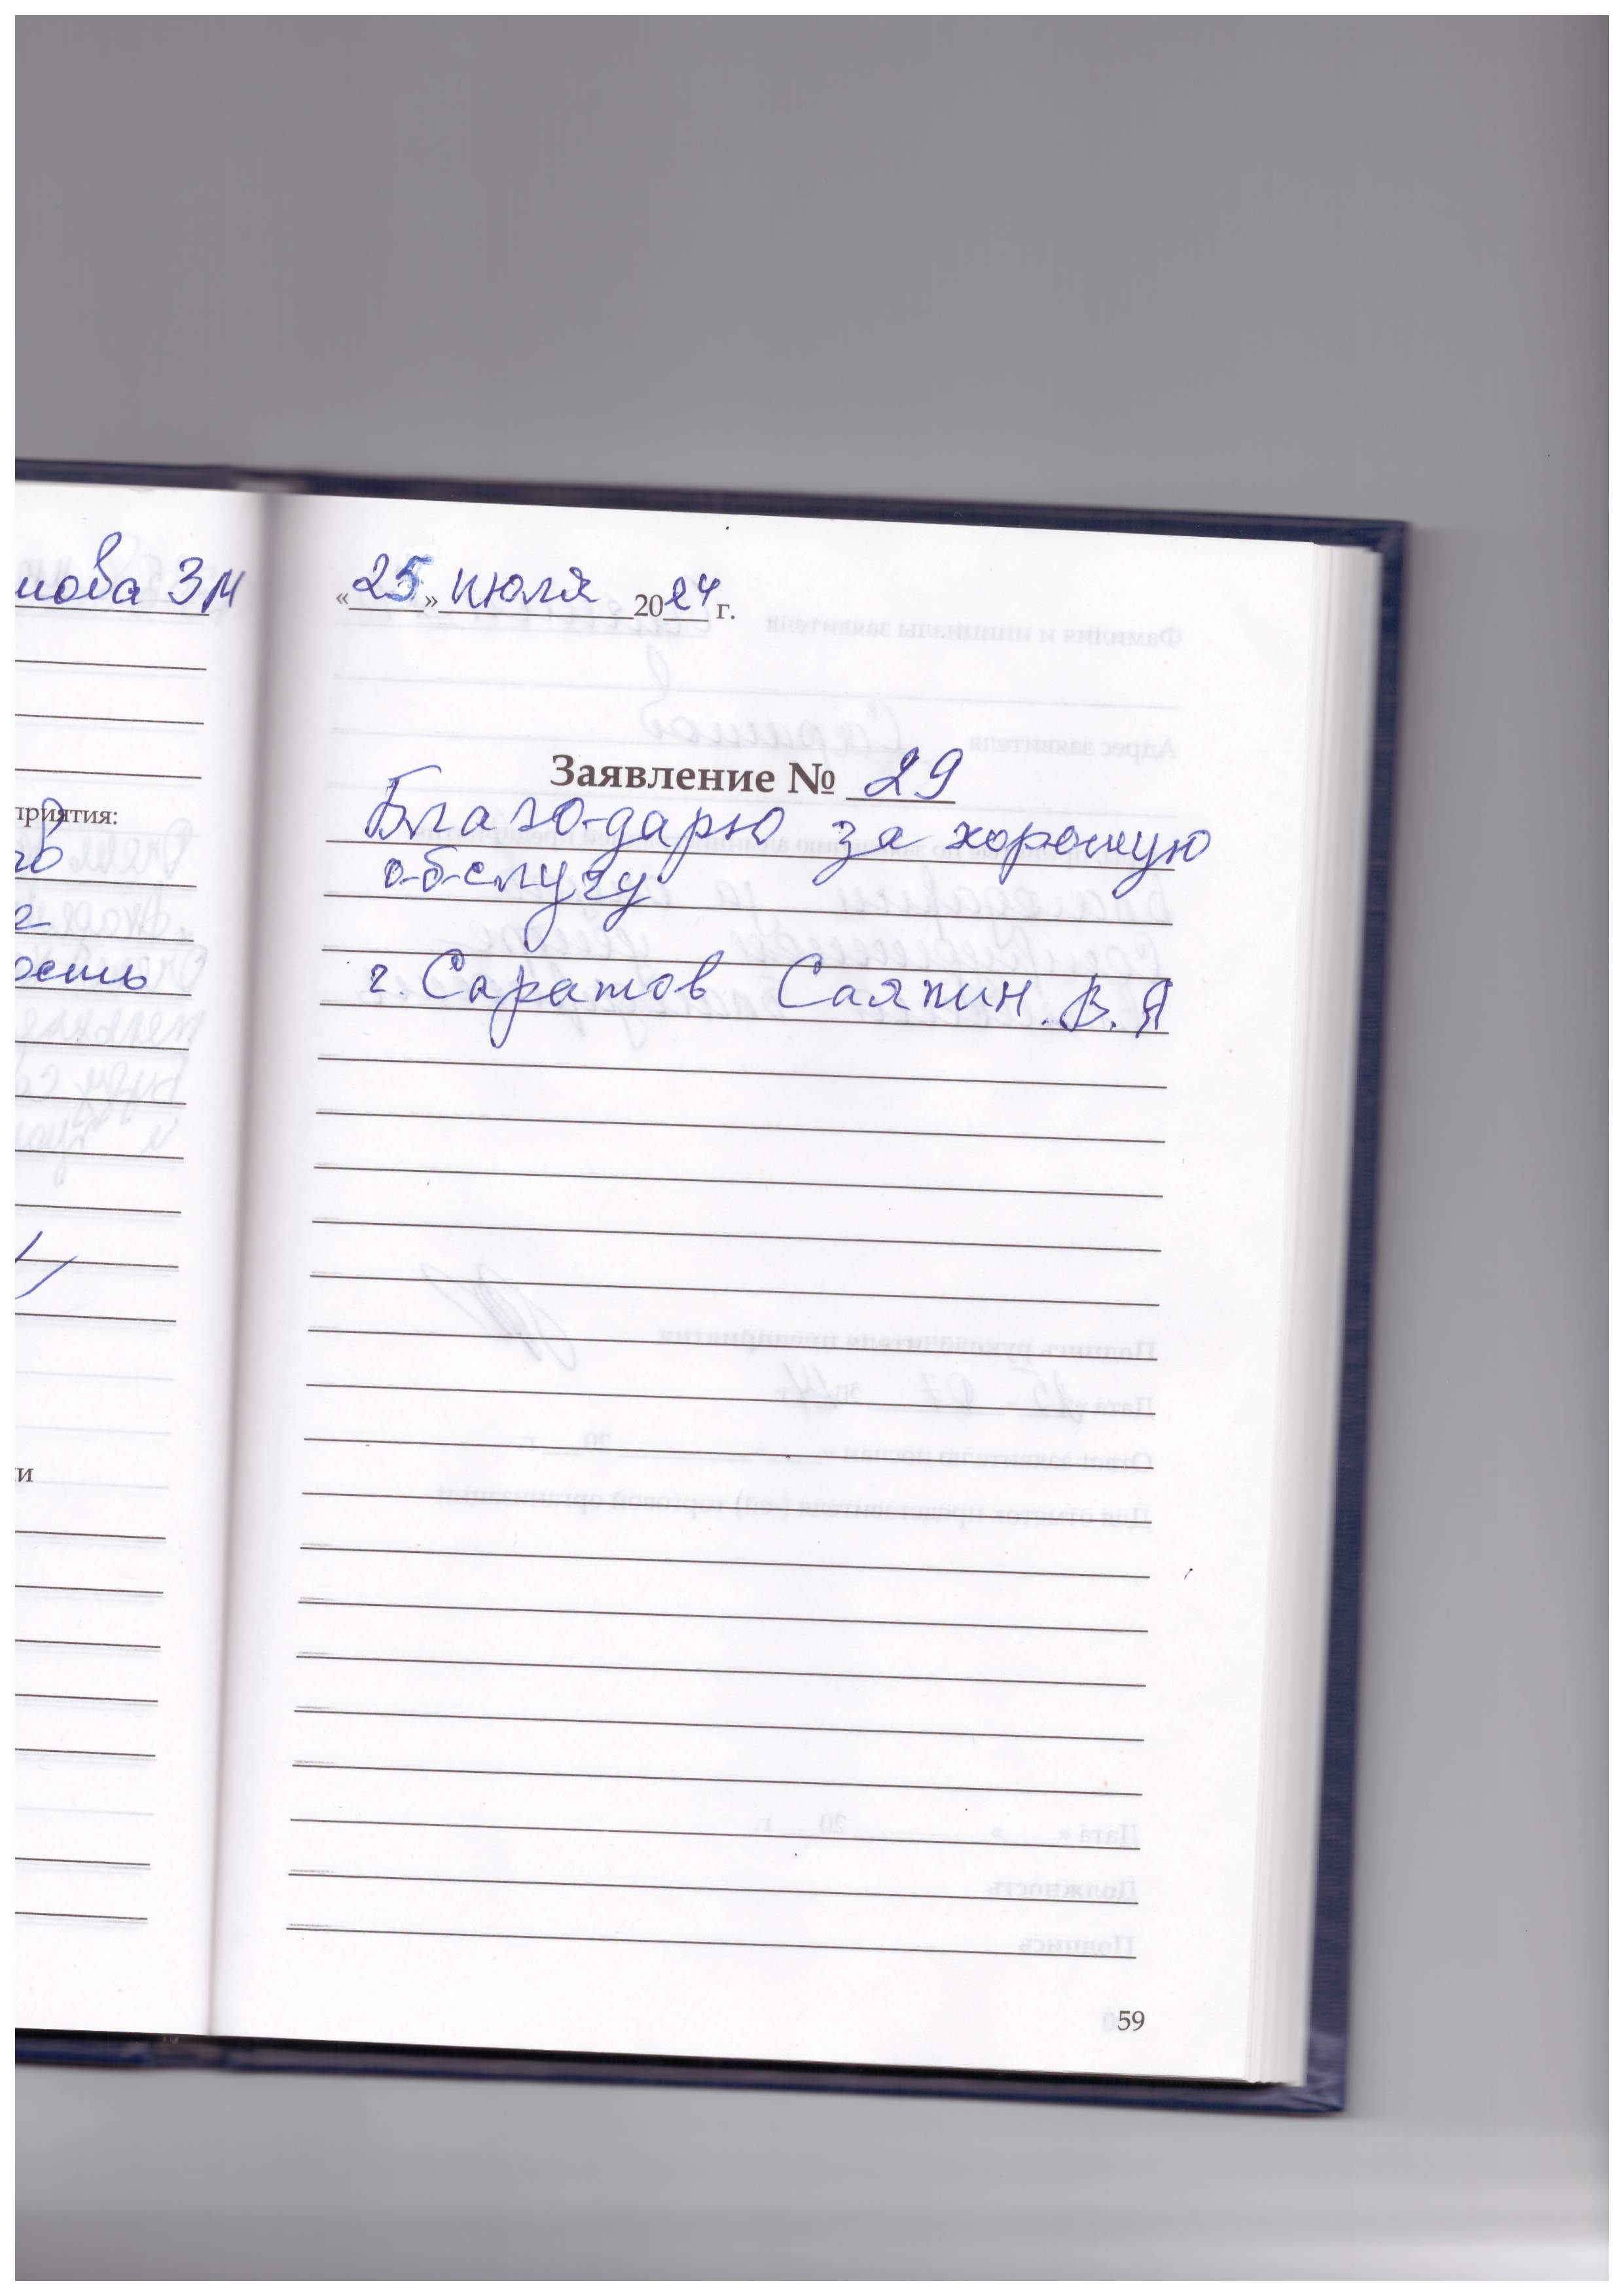 нова ЗМ
приятия:
ость
ти
«25» июля 2024 г.
Заявление № 29
Благодарю за хорошую
обслугу
г. Саратов Саяпин .В.Я
59